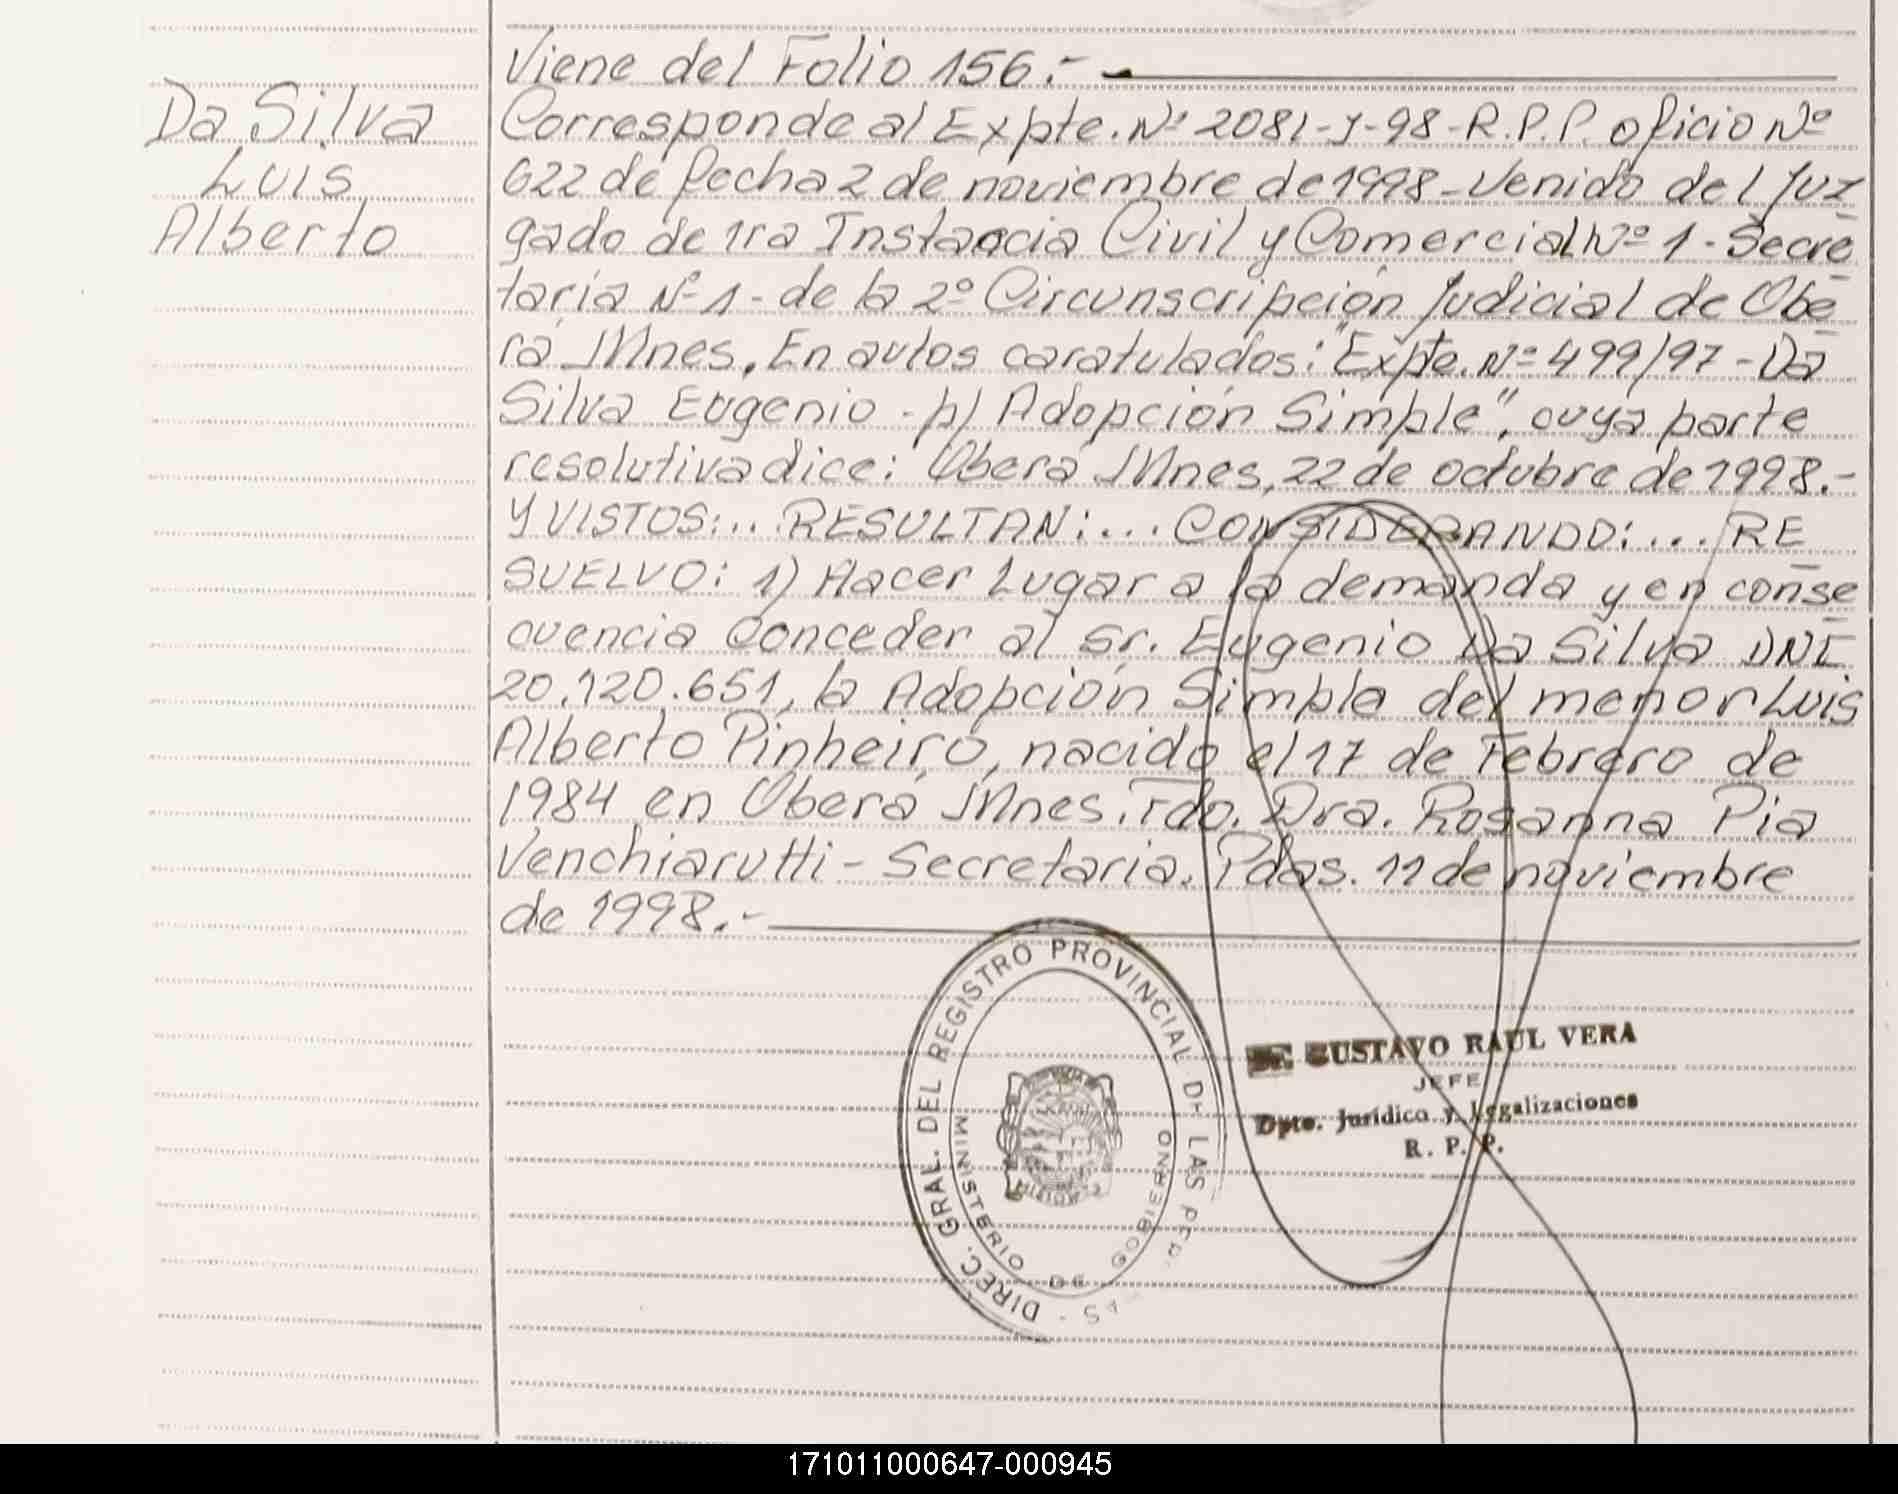 Viene del Folio 156.-
Da Silva
Luis
Alberto
Corresponde al Expte. Nº 2081-J-98-R.P.P. oficio Nº
622 de fecha 2 de noviembre de 1998-Venido del Juz
gado de 1ra Instancia Civil y Comercial Nº 1 - Secre
taría Nº 1 - de la 2º Circunscripción Judicial de Obe
rá Mnes. En autos caratulados: "Expte. Nº 499/97 - Da
Silva Eugenio - p/ Adopción Simple", cuya parte
resolutiva dice: Oberá Mnes, 22 de octubre de 1998.-
Y VISTOS:... RESULTAN:... CONSIDERANDO:... RE
SUELVO: 1) Hacer Lugar a la demanda y en conse
cuencia Conceder al Sr. Eugenio Da Silva DNI
20.120.651, la Adopción Simple del menor Luis
Alberto Pinheiro, nacido el 17 de Febrero de
1984 en Oberá Mnes. Fdo. Dra. Rosanna Pia
Venchiarutti - Secretaria. Pdas. 11 de noviembre
de 1998.-
DIREC. GRAL. DEL REGISTRO PROVINCIAL DE LAS PER AS -
MINISTERIO DE GOBIERNO
MISIONES
GUSTAVO RAUL VERA
JEFE
Dpto. Jurídico y Legalizaciones
R. P. P.
171011000647-000945